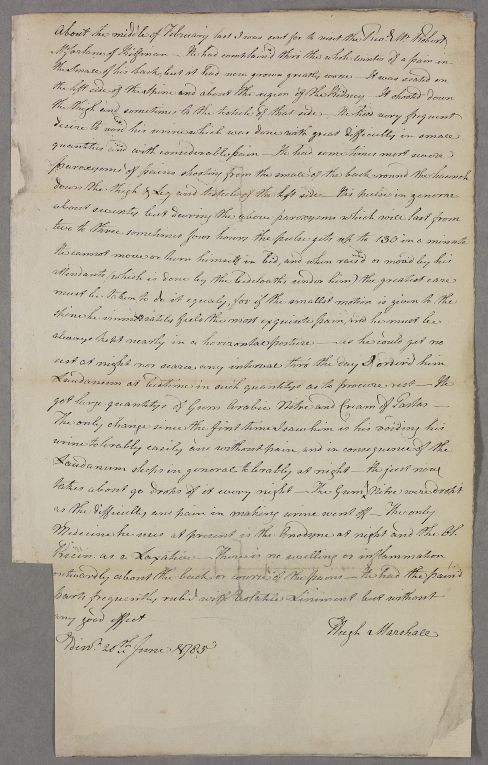 About the middle of February last I was sent for to meet the Revd. Mr. Robert
McFarlane of Kiffinan – He had complain'd thro the whole winter of a pain in
the Small of his back, but it had now grown greatly worse – It was seated in
the left side of the Spine and about the region of the Kidney – It shooted down
the thigh and sometimes to the testicle of that side – He has a very frequent
desire to void his urine which was done with great difficulty in small
quantities and with considerable pain – He had some times most severe
paroxysms of pains shooting from the small of the back round the haunch
down the Thigh & Leg and testicle of the left side – His pulse in general
about seventy but dureing the severe paroxysms which will last from
two to three sometimes four hours the pulse gets up to 130 in a minute
He cannot move or turn himself in bed, and when rais'd or mov'd by his
attendants (which is done by the bedcloaths under him) the greatest care
must be taken to do it equaly, for if the smallest motion is given to the
spine he immediately feels the most exquisite pain, and he must be
always kept nearly in a horizontal posture – as he could get no
rest at night nor scarce any interval thro the day I order'd him
Laudanum at bedtime in such quantitys as to procure rest – He
got large quantitys of Gum Arabic Nitre and Cream of Tartar –
The only change since the first time I saw him is his voiding his
urine tolerably easily and without pain and in consequence of the
Laudanum sleeps in general tolerably at night – he just now
takes about 90 drops of it every night – The Gum & Nitre were dropt
as the difficulty and pain in making urine went off – The only
Medicine he uses at present is the Anodyne at night and the Ol.
Ricin. as a Laxative – There is no swelling or inflammation
outwardly about the back or course of the psoas – He had the pain'd
parts frequently rub'd with Volatile Liniment but without
any good effect
Hugh Marshall
20th June 1785